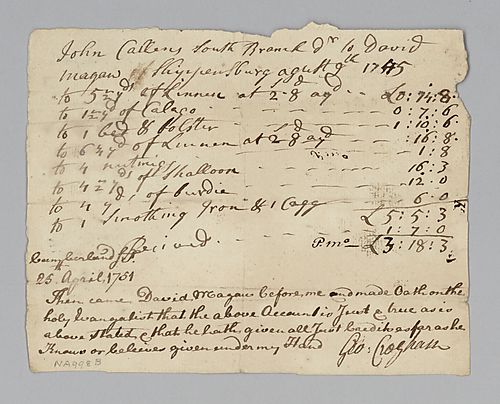 John Callens South Branch Dr to David
Magaw of Shippensburg agust 9th 1745
to 5 yds of Linnen at 2s 8d a yd - - £0:14:8
to 1 yd of Calaco - - - 0:7:6
to 1 bed & bolster - - - 1:10:6
to 6 yd of Linnen at 2s 8d a yd - 16:8
to 4 nutmigs - - - 1:8
to 4 yds of Shalloon - - - 16:3
to 4 yds of burdie - - - 12:0
to 1 Smothing Iron & 1 Cagg - - 6:0
£5:5:3
Received - - - 1:7:0
£3:18:3
Cumberland Ss
25th April, 1751
Then came David Magaw before me and made Oath on the
holy Evangalist that the above Account is Just & true as is
above stated & that he hath given all Just Credit as far as he
Knows or believes given under my Hand Geo: Croghan
NA998B